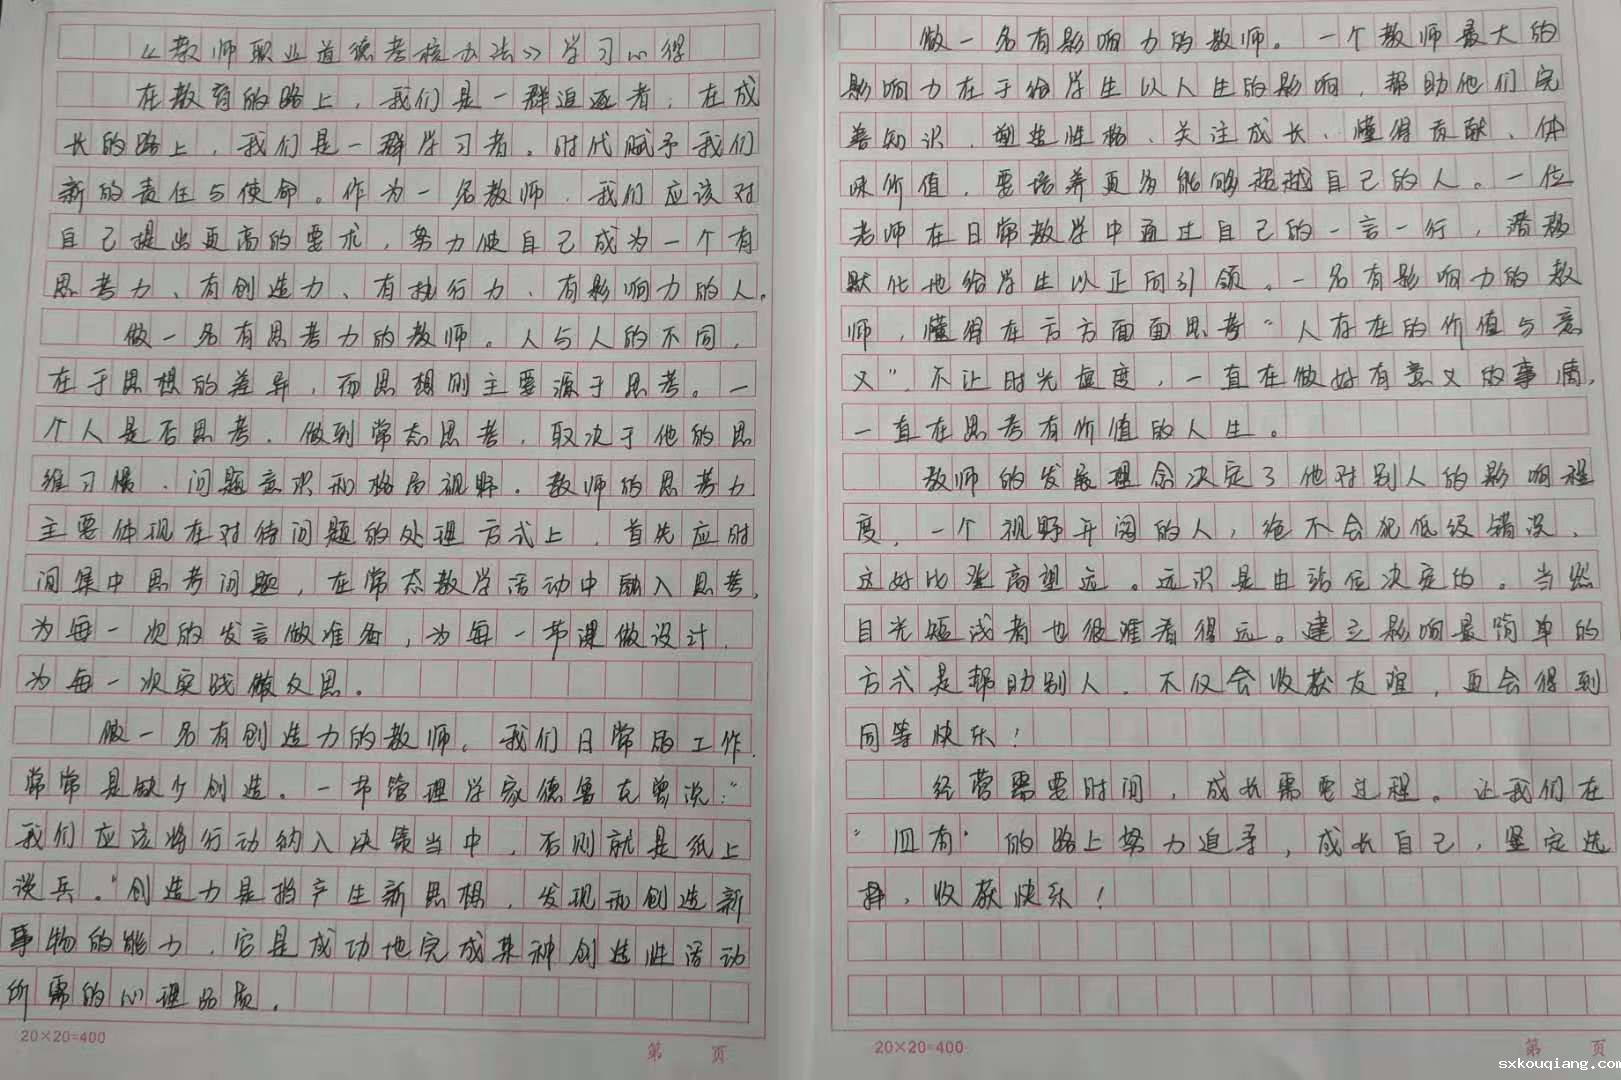 《教师职业道德考核办法》学习心得
在教育的路上，我们是一群追逐者，在成
长的路上，我们是一群学习者。时代赋予我们
新的责任与使命。作为一名教师，我们应该对
自己提出更高的要求，努力使自己成为一个有
思考力、有创造力、有执行力、有影响力的人。
做一名有思考力的教师。人与人的不同，
在于思想的差异，而思想则主要源于思考。一
个人是否思考，做到常态思考，取决于他的思
维习惯、问题意识和格局视野。教师的思考力
主要体现在对待问题的处理方式上，首先应时
间集中思考问题，在常态教学活动中融入思考，
为每一次的发言做准备，为每一节课做设计，
为每一次实践做反思。
做一名有创造力的教师。我们日常的工作，
常常是缺少创造。一书管理学家德鲁克曾说：“
我们应该将行动纳入决策当中，否则就是纸上
谈兵。”创造力是指产生新思想，发现和创造新
事物的能力，它是成功地完成某种创造性活动
所需的心理品质。
20×20=400
第 页
做一名有影响力的教师。一个教师最大的
影响力在于给学生以人生的影响，帮助他们完
善知识、塑造性格、关注成长、懂得贡献、体
味价值，要培养更多能够超越自己的人。一位
老师在日常教学中通过自己的一言一行，潜移
默化地给学生以正向引领。一名有影响力的教
师，懂得在方方面面思考“人存在的价值与意
义”不让时光虚度，一直在做好有意义的事情，
一直在思考有价值的人生。
教师的发展理念决定了他对别人的影响程
度，一个视野开阔的人，绝不会犯低级错误，
这好比登高望远。远识是由站位决定的。当然
目光短浅者也很难看得远。建立影响最简单的
方式是帮助别人，不仅会收获友谊，更会得到
同等快乐！
经营需要时间，成长需要过程。让我们在
“四有”的路上努力追寻，成长自己，坚定选
择，收获快乐！
20×20=400
第 页
sxkouqiang.com